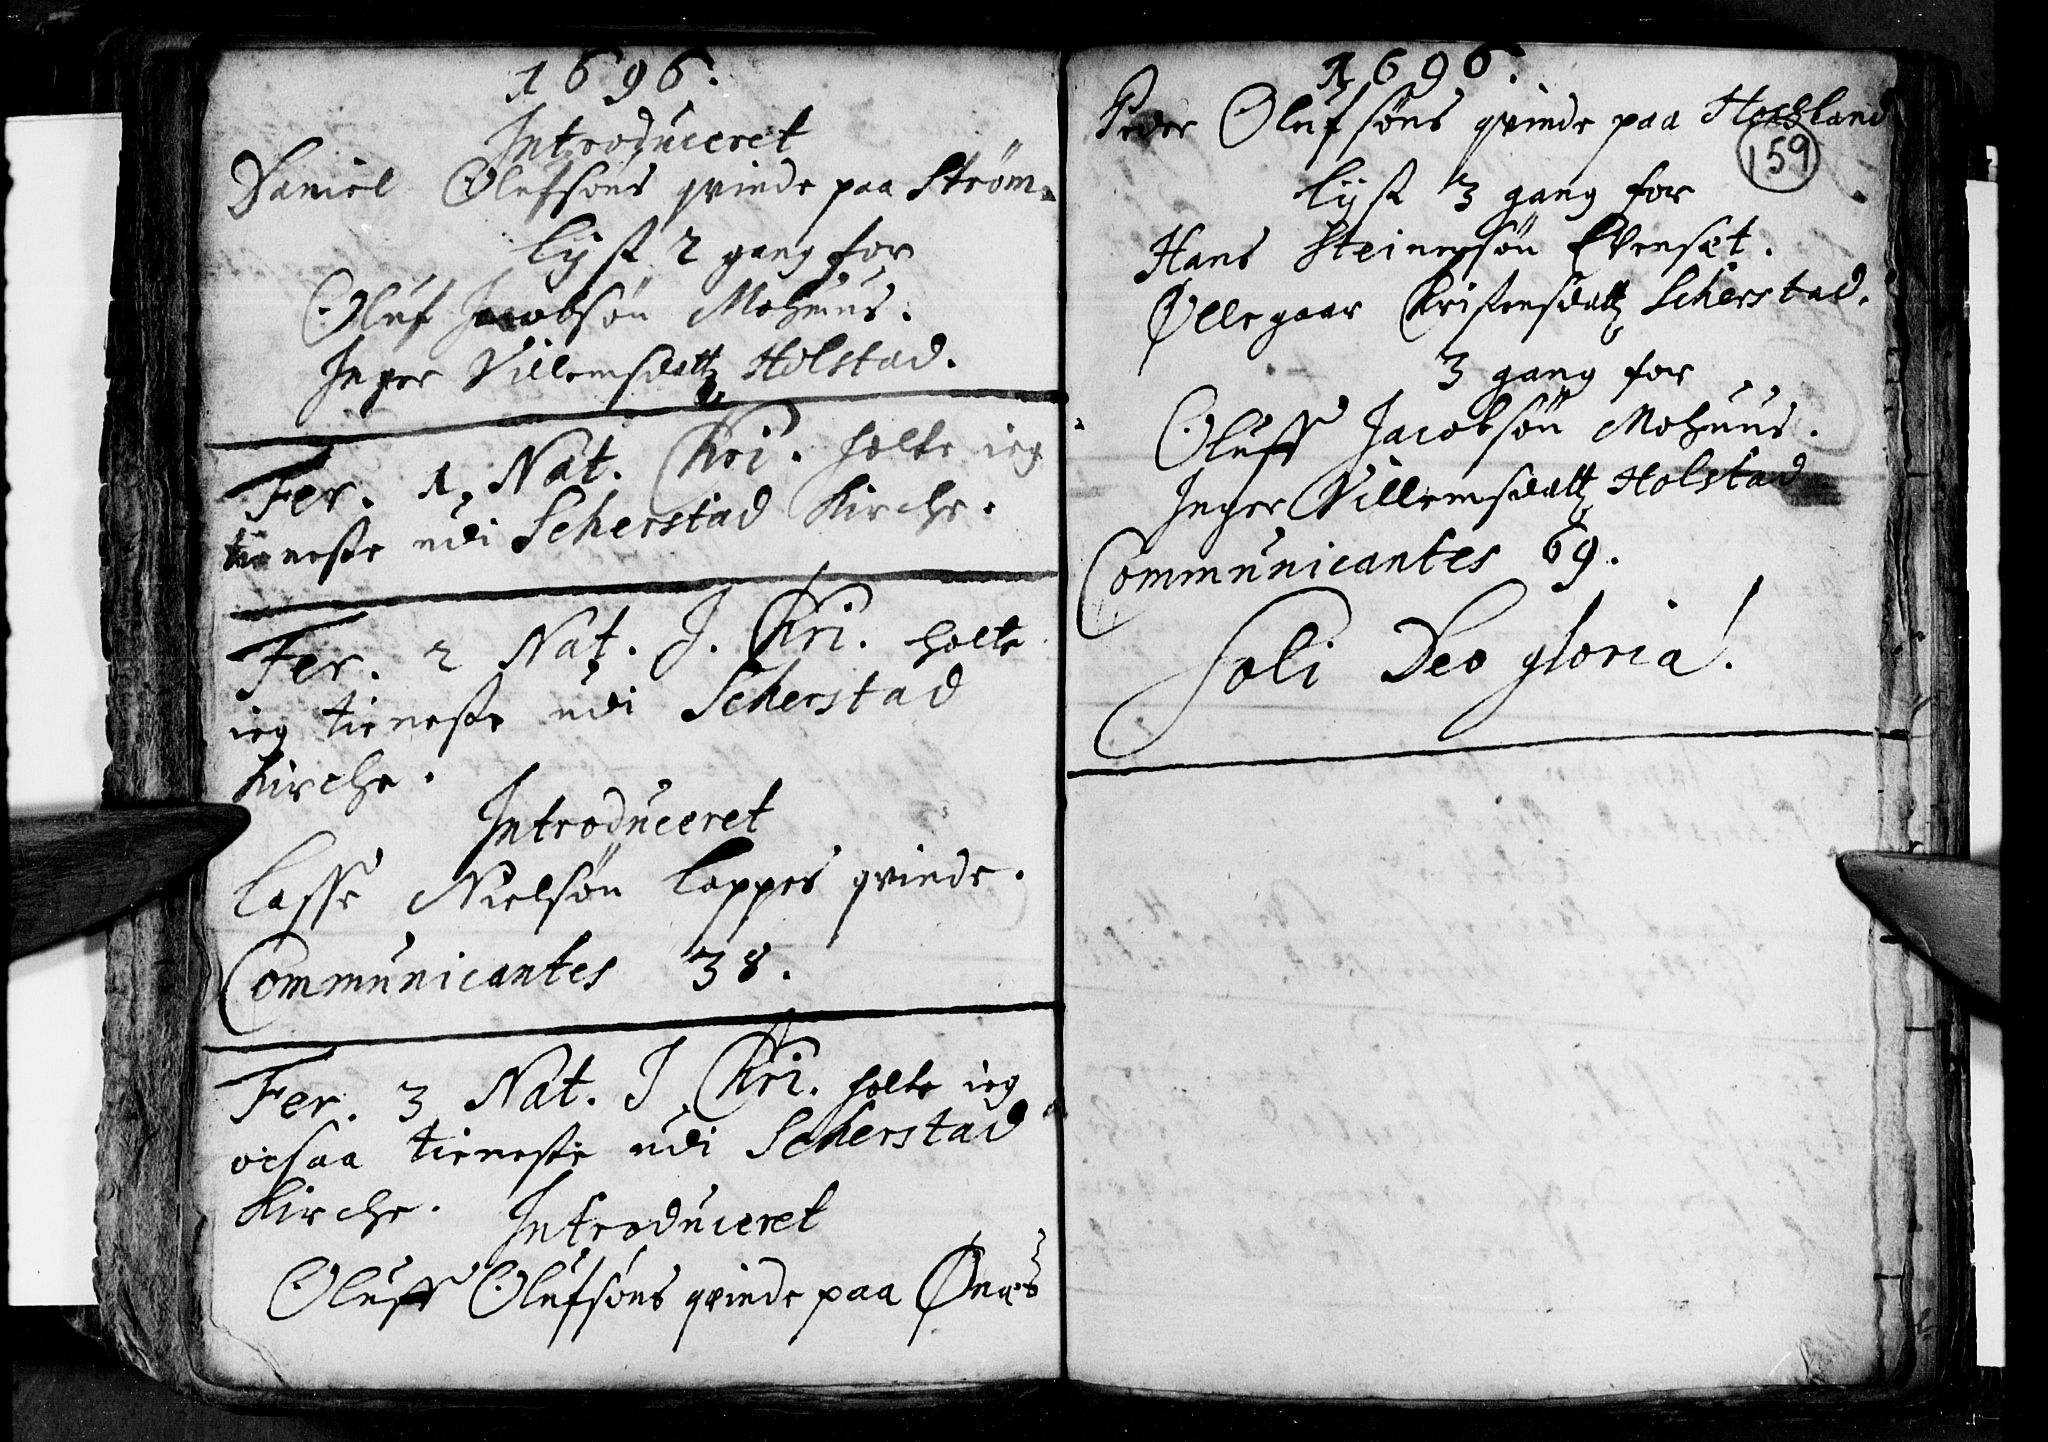 1696.
Introduceret
Daniel Olufsøns qvinde paa Strøm.
lyst 2 gang for
Oluf Jacobsøn Mohuus.
Inger Villemsdatt Holstad.
Fer. 1. Nat. Chri. holte ieg
tieneste udi Scherstad Kirche.
Fer. 2 Nat. J. Chri. holte
ieg tieneste udi Scherstad
Kirche.
Introduceret
Lasse Nielsøn Lappes qvinde.
Communicantes 38.
Fer. 3 Nat. J. Chri. holte ieg
ocsaa tieneste udi Scherstad
Kirche.
Introduceret
Oluff Olufsøns qvinde paa Ønæs
1696.
Peder Olufsøns qvinde paa
159
lyst 3 gang for
Hans Steinersøn Evensæt.
Øllegaar Christensdatt Scherstad.
3 gang for
Oluff Jacobsøn Mohuus.
Inger Villemsdatt Holstad
Communicantes 69.
Soli Deo gloria!